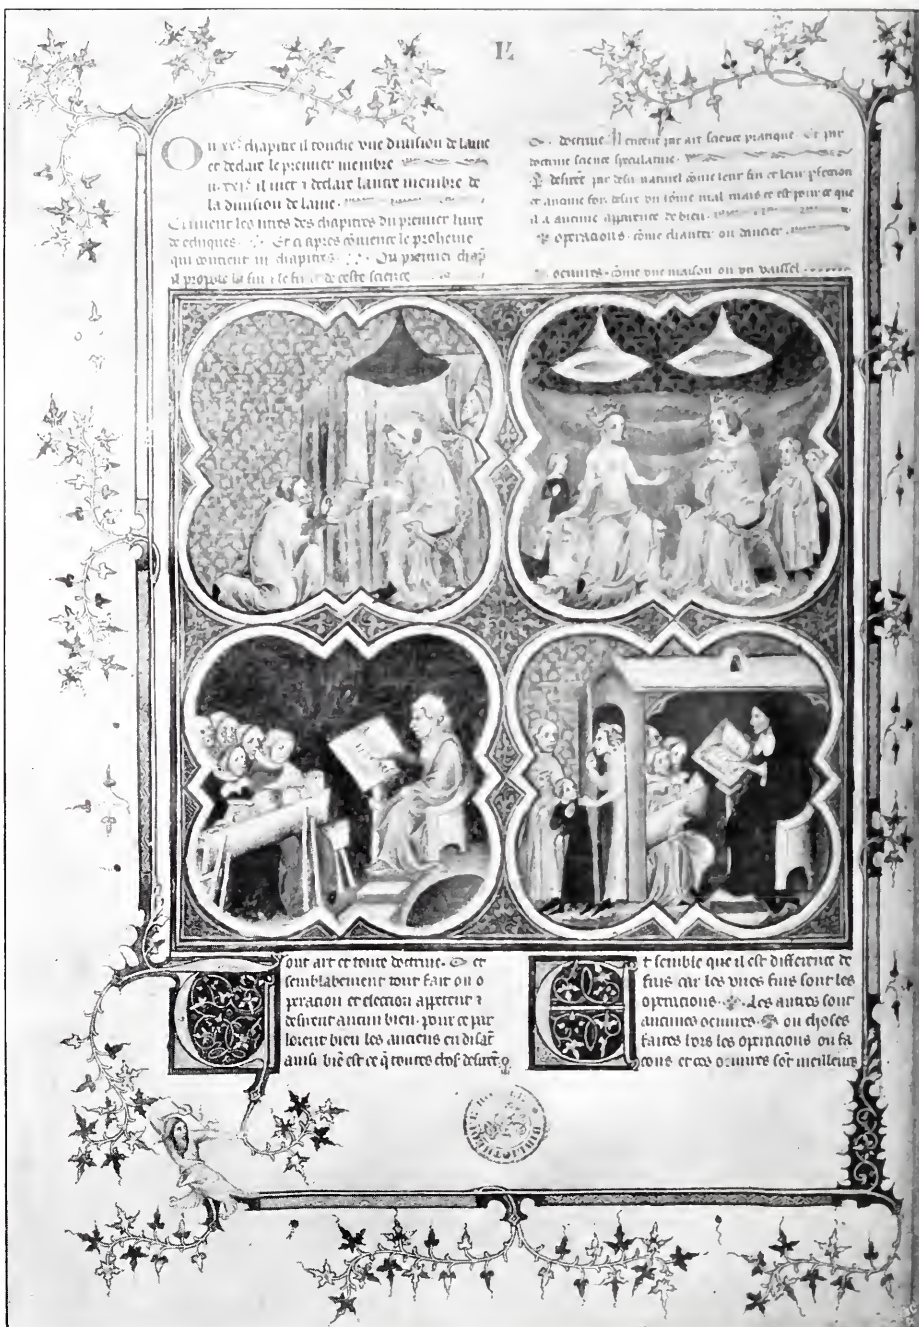 Ou xxᵉ chapitre il touche une division de lame
et declaire le premier membre
u .xxiᵉ. il met et declaire lautre membre de
la division de lame.
Ci finent les titres des chapitres du premier livre
de ethiques. Et ci apres comence le prohemie
qui contient iii chapitres. Ou premier chap̄
il propose la fin de ceste science
doctrine. Il entent par art science pratique. Et par
doctrine science speculative.
desirer par desir naturel cōme leur fin et leur pfection
et aucune fois desire un hōme mal mais ce est pour ce que
il a aucune apparence de bien.
operacions. cōme chanter ou dancier.
oeuvres. cōme une maison ou un vaissel
Tout art et toute doctrine. et
semblablement tout fait ou o
peracion et election appetent et
desirent aucun bien. pour ce par
lerent bien les anciens en disāt
ainsi biē est ce q̄ toutes choses desirēt
Et semble que il est difference de
fins car les unes fins sont les
operacions. Les autres sont
aucunes oeuvres ou choses
faites hors les operacions ou fa
cons et ces oeuvres sōt meilleurs